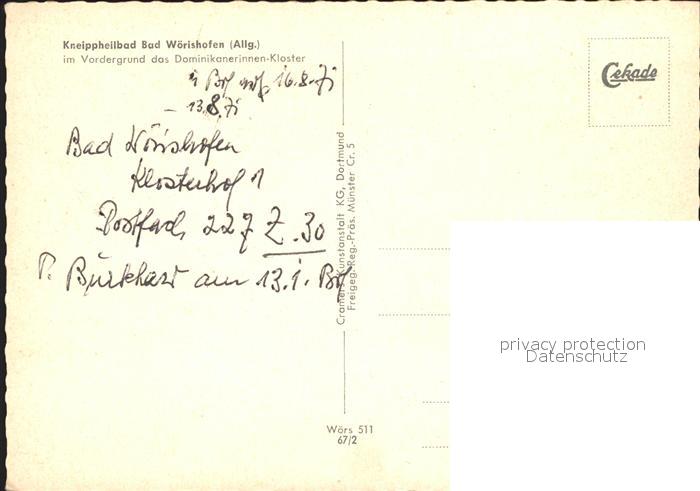 Kneippheilbad Bad Wörishofen (Allg.)
im Vordergrund das Dominikanerinnen-Kloster
16.8.71
- 13.8.71
Bad Wörishofen
Klosterhof 1
Postfach 227 Z.30
P. Burkhard am 13.1.
Cramers Kunstanstalt KG, Dortmund
Freigeg. Reg.-Präs. Münster Cr. 5
Wörs 511
67/2
Cekade
privacy protection
Datenschutz